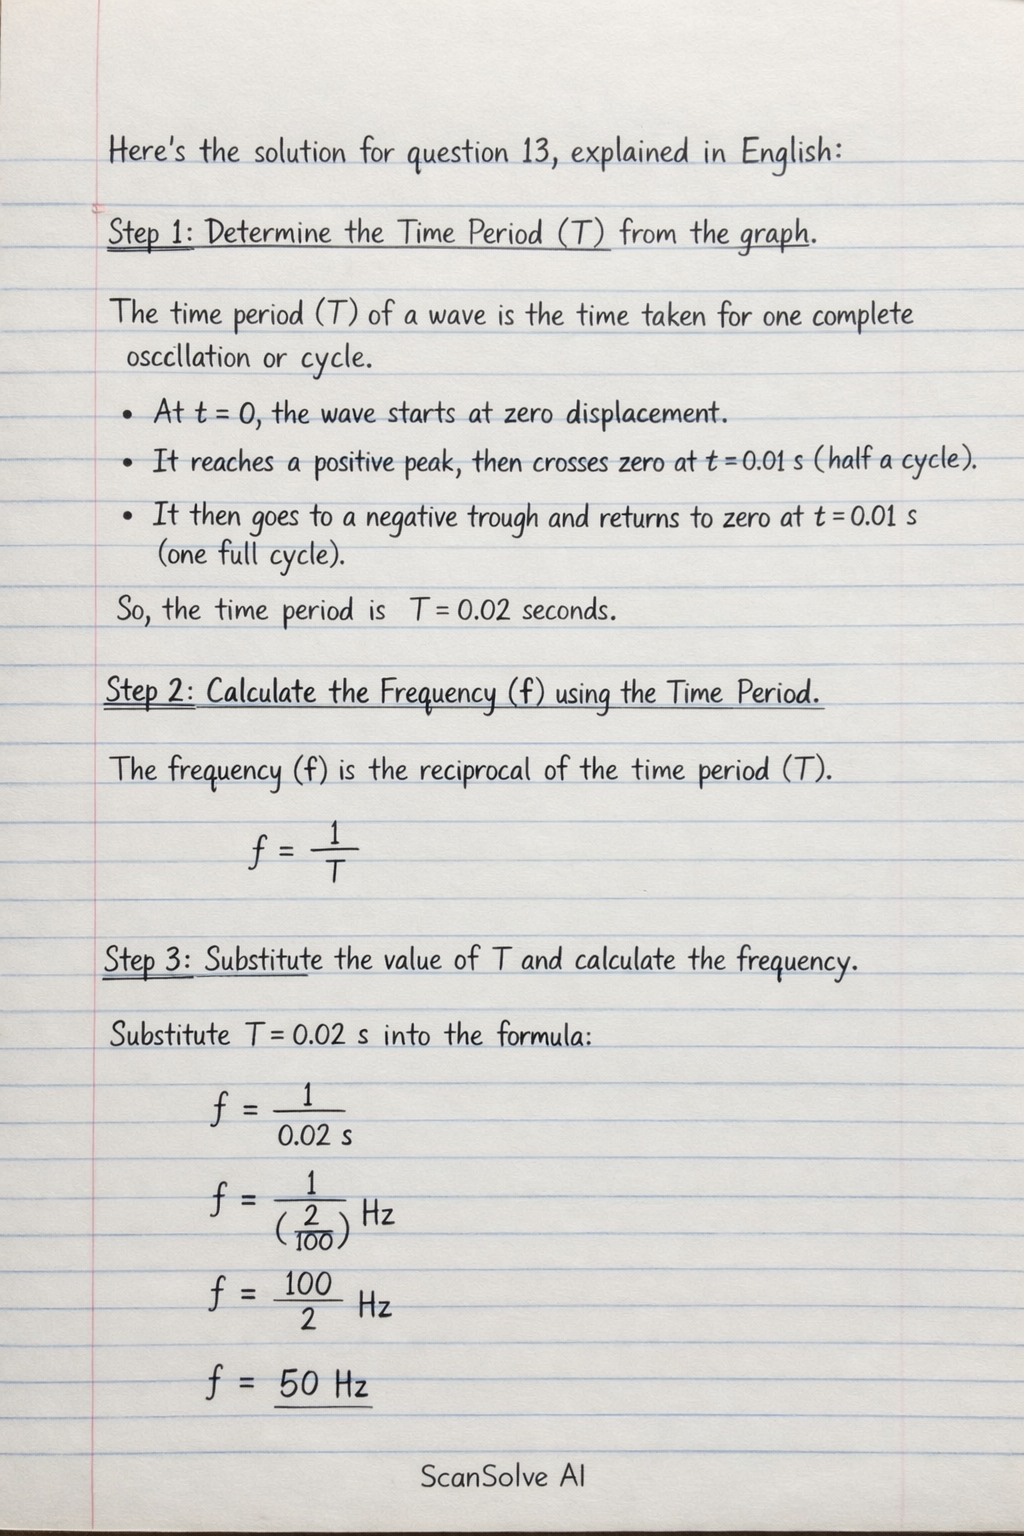 Here's the solution for question 13, explained in English:
Step 1: Determine the Time Period (T) from the graph.
The time period (T) of a wave is the time taken for one complete
osccllation or cycle.
• At t = 0, the wave starts at zero displacement.
• It reaches a positive peak, then crosses zero at t = 0.01 s (half a cycle).
• It then goes to a negative trough and returns to zero at t = 0.01 s
(one full cycle).
So, the time period is T = 0.02 seconds.
Step 2: Calculate the Frequency (f) using the Time Period.
The frequency (f) is the reciprocal of the time period (T).
f = 1/T
Step 3: Substitute the value of T and calculate the frequency.
Substitute T = 0.02 s into the formula:
f = 1/0.02 s
f = 1/(2/100) Hz
f = 100/2 Hz
f = 50 Hz
ScanSolve AI